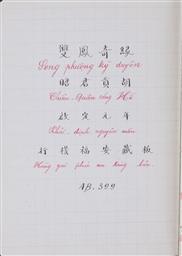 雙鳳奇緣
Song phượng kỳ duyên
昭君貢胡
Chiêu-Quân cống Hồ
啟定元年
Khải-định nguyên niên
行棧福安藏板
Hàng gai phúc an tàng bản.
AB.399